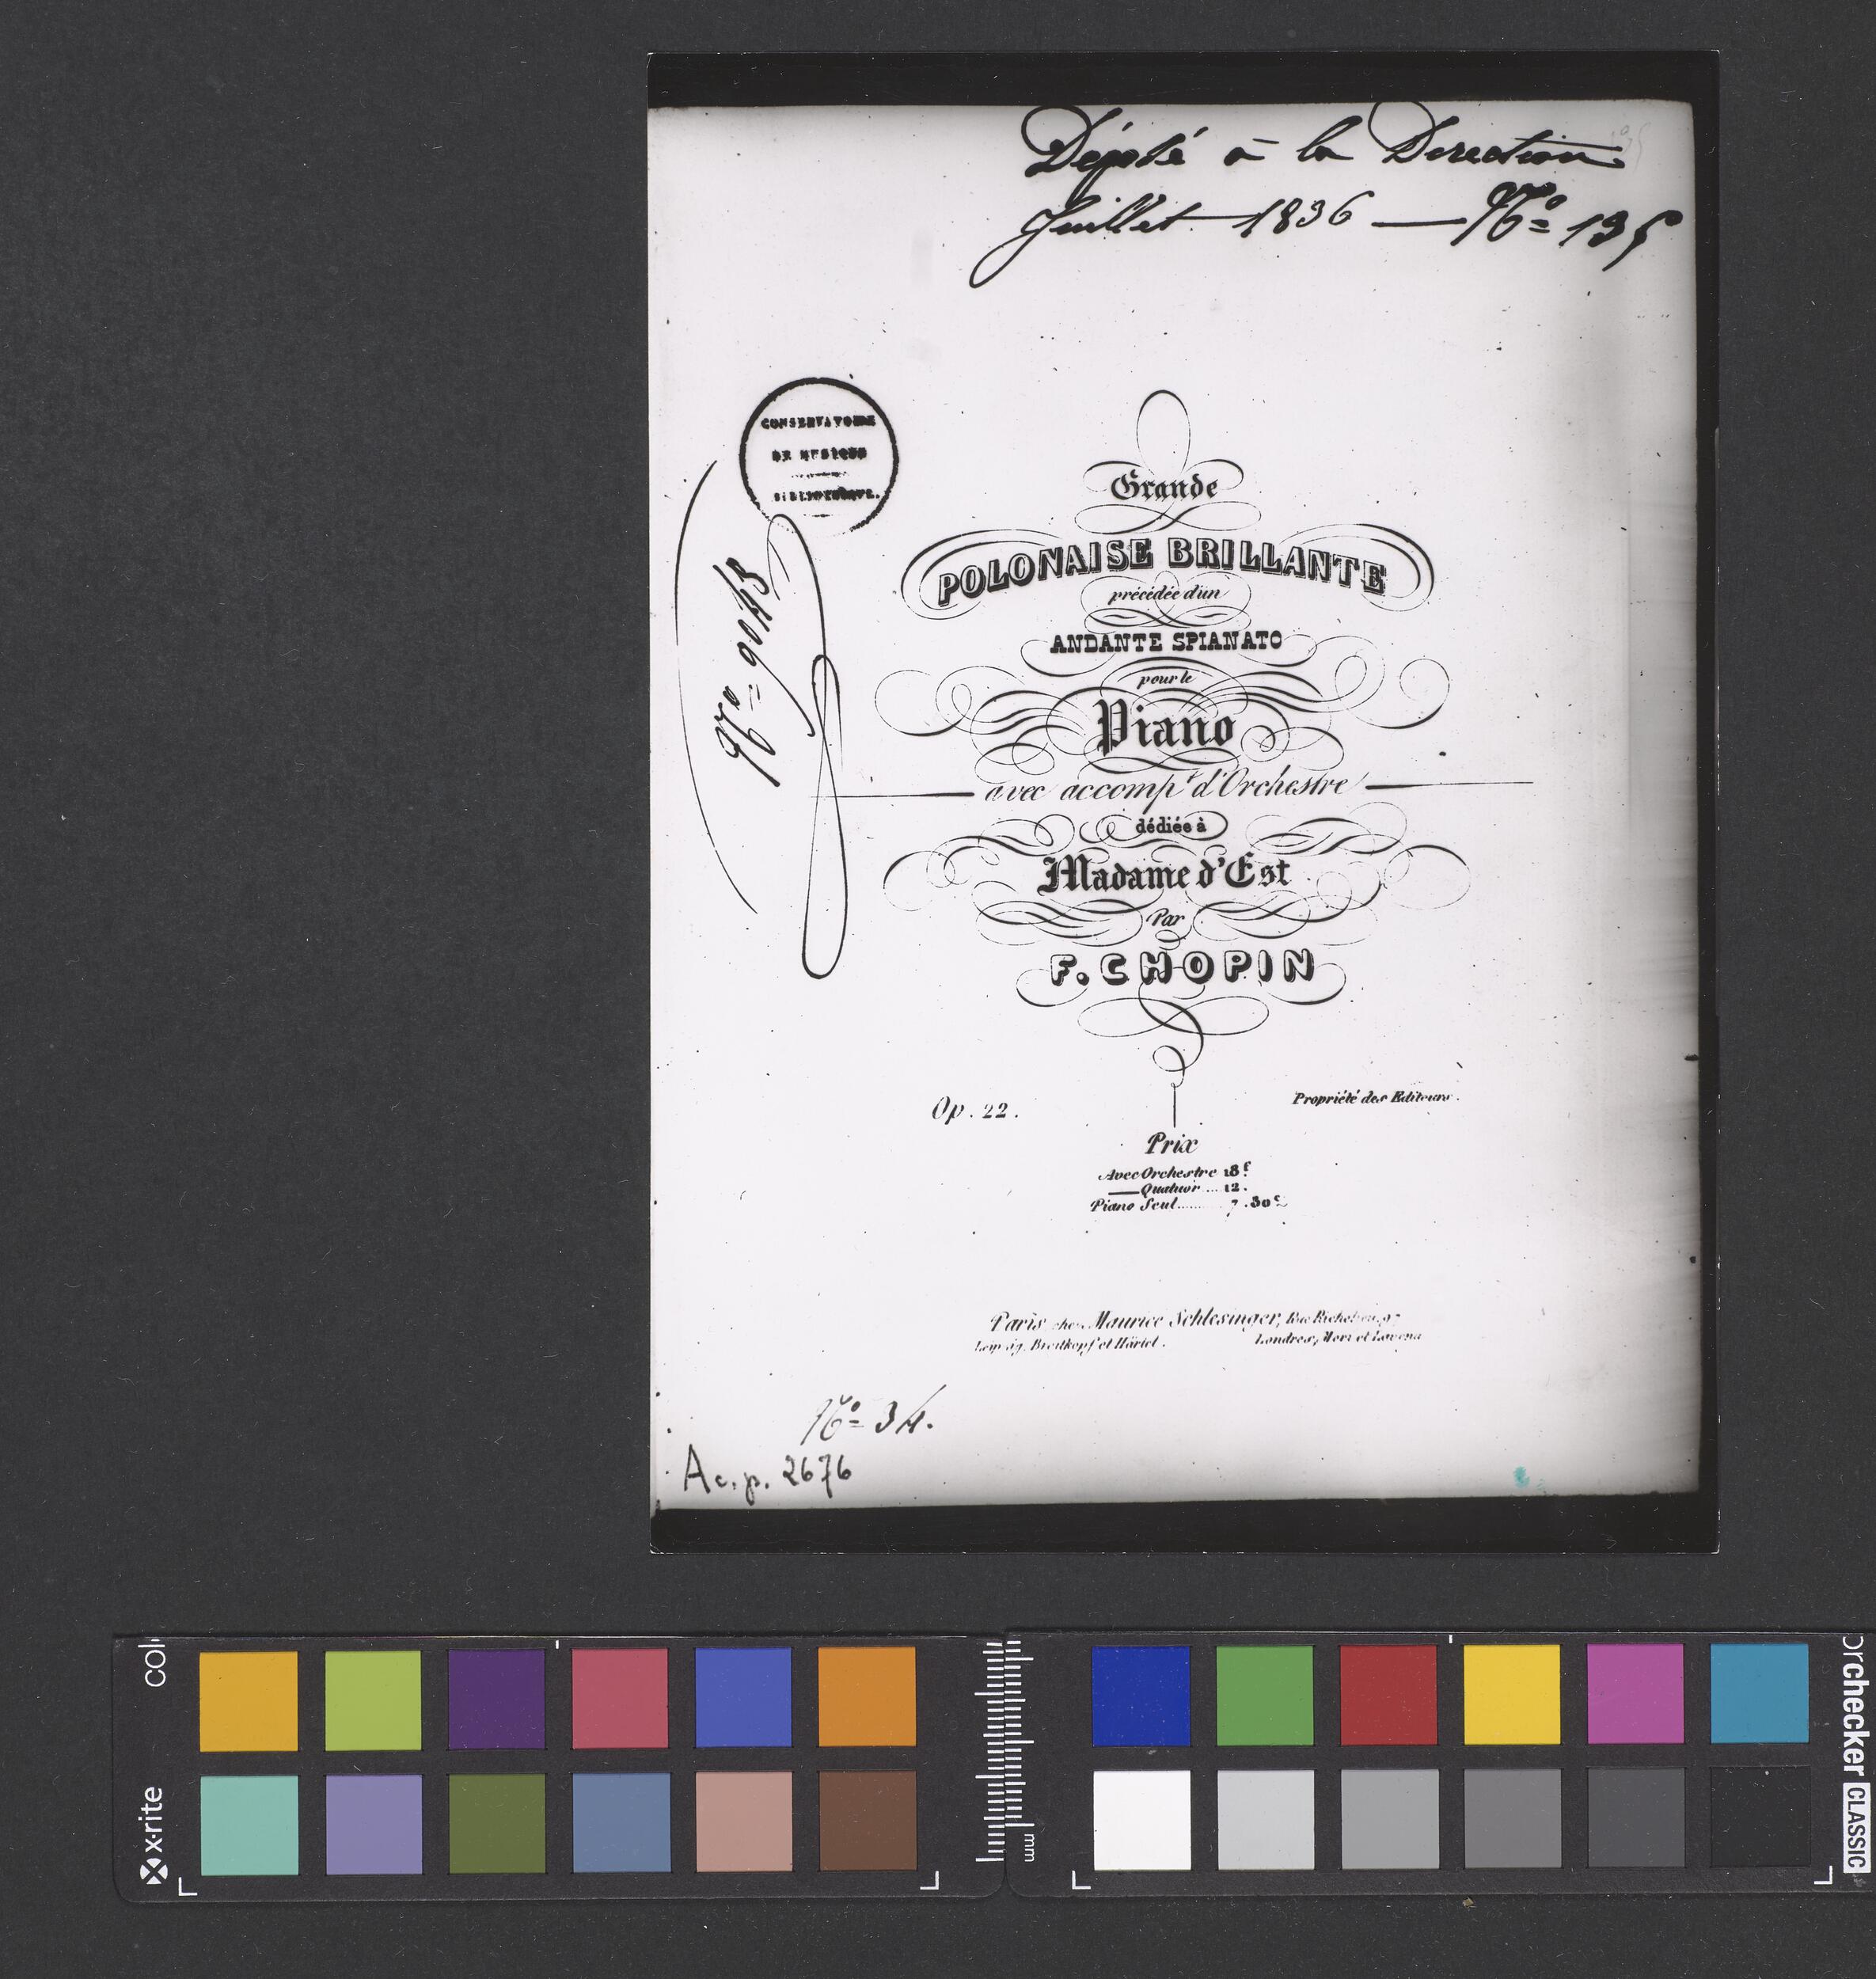 Déposé à la Direction
Juillet 1836 — No 195
CONSERVATOIRE
DE MUSIQUE
BIBLIOTHÈQUE.
Grande
POLONAISE BRILLANTE
précédée d'un
ANDANTE SPIANATO
pour le
Piano
avec accompt d'Orchestre
dédiée à
Madame d'Est
Par
F. CHOPIN
Op. 22.
Propriété des Editeurs.
Prix
Avec Orchestre 18f
Quatuor ... 12.
Piano Seul....... 7.50c
Paris, chez Maurice Schlesinger, Rue Richelieu, 97
Leipzig, Breitkopf et Härtel.
Londres, Mori et Lavenu
No 34.
Ac. p. 2676
x-rite
col
mm
orchecker CLASSIC